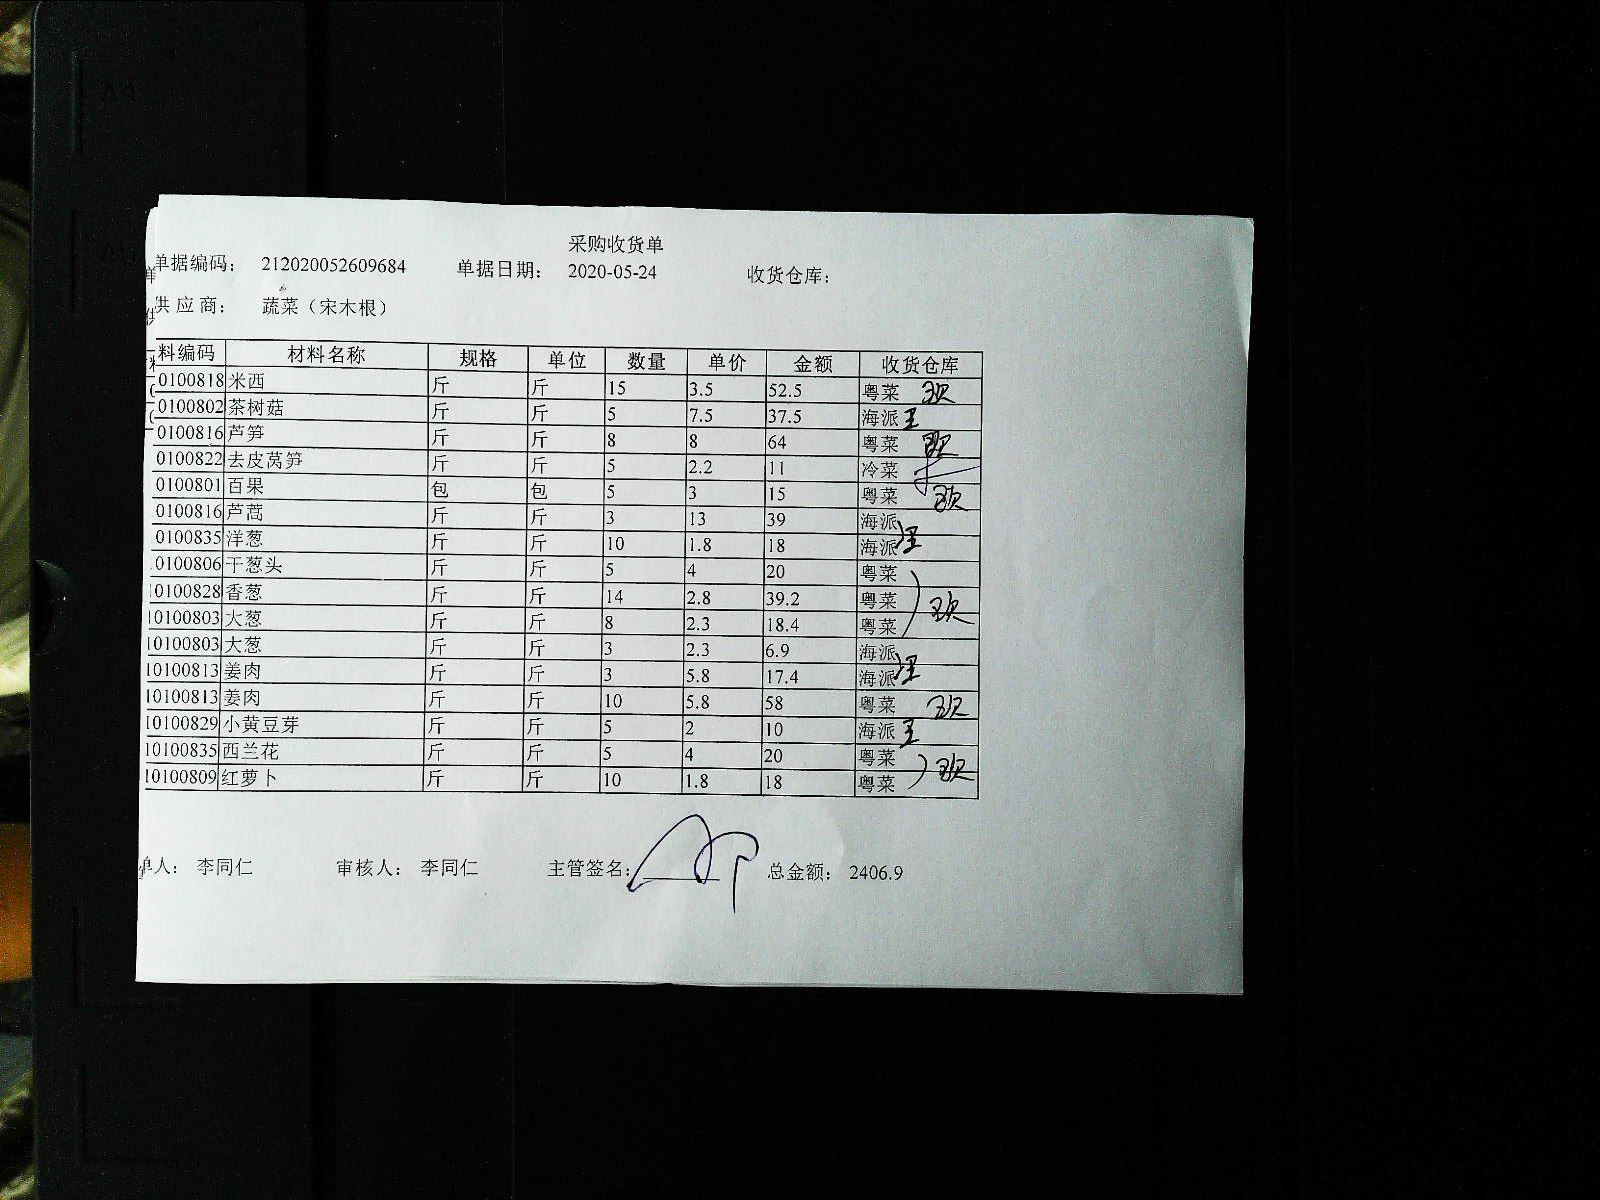 采购收货单
单据编码： 212020052609684 单据日期： 2020-05-24 收货仓库：
供应商： 蔬菜（宋木根）
料编码 材料名称 规格 单位 数量 单价 金额 收货仓库
0100818 米西 斤 斤 15 3.5 52.5 粤菜
0100802 茶树菇 斤 斤 5 7.5 37.5 海派 王
0100816 芦笋 斤 斤 8 8 64 粤菜
0100822 去皮莴笋 斤 斤 5 2.2 11 冷菜
0100801 百果 包 包 5 3 15 粤菜
0100816 芦蒿 斤 斤 3 13 39 海派
0100835 洋葱 斤 斤 10 1.8 18 海派 王
0100806 干葱头 斤 斤 5 4 20 粤菜
10100828 香葱 斤 斤 14 2.8 39.2 粤菜
10100803 大葱 斤 斤 8 2.3 18.4 粤菜
10100803 大葱 斤 斤 3 2.3 6.9 海派
10100813 姜肉 斤 斤 3 5.8 17.4 海派 王
10100813 姜肉 斤 斤 10 5.8 58 粤菜
10100829 小黄豆芽 斤 斤 5 2 10 海派 王
10100835 西兰花 斤 斤 5 4 20 粤菜
10100809 红萝卜 斤 斤 10 1.8 18 粤菜
单人： 李同仁 审核人： 李同仁 主管签名： 总金额： 2406.9